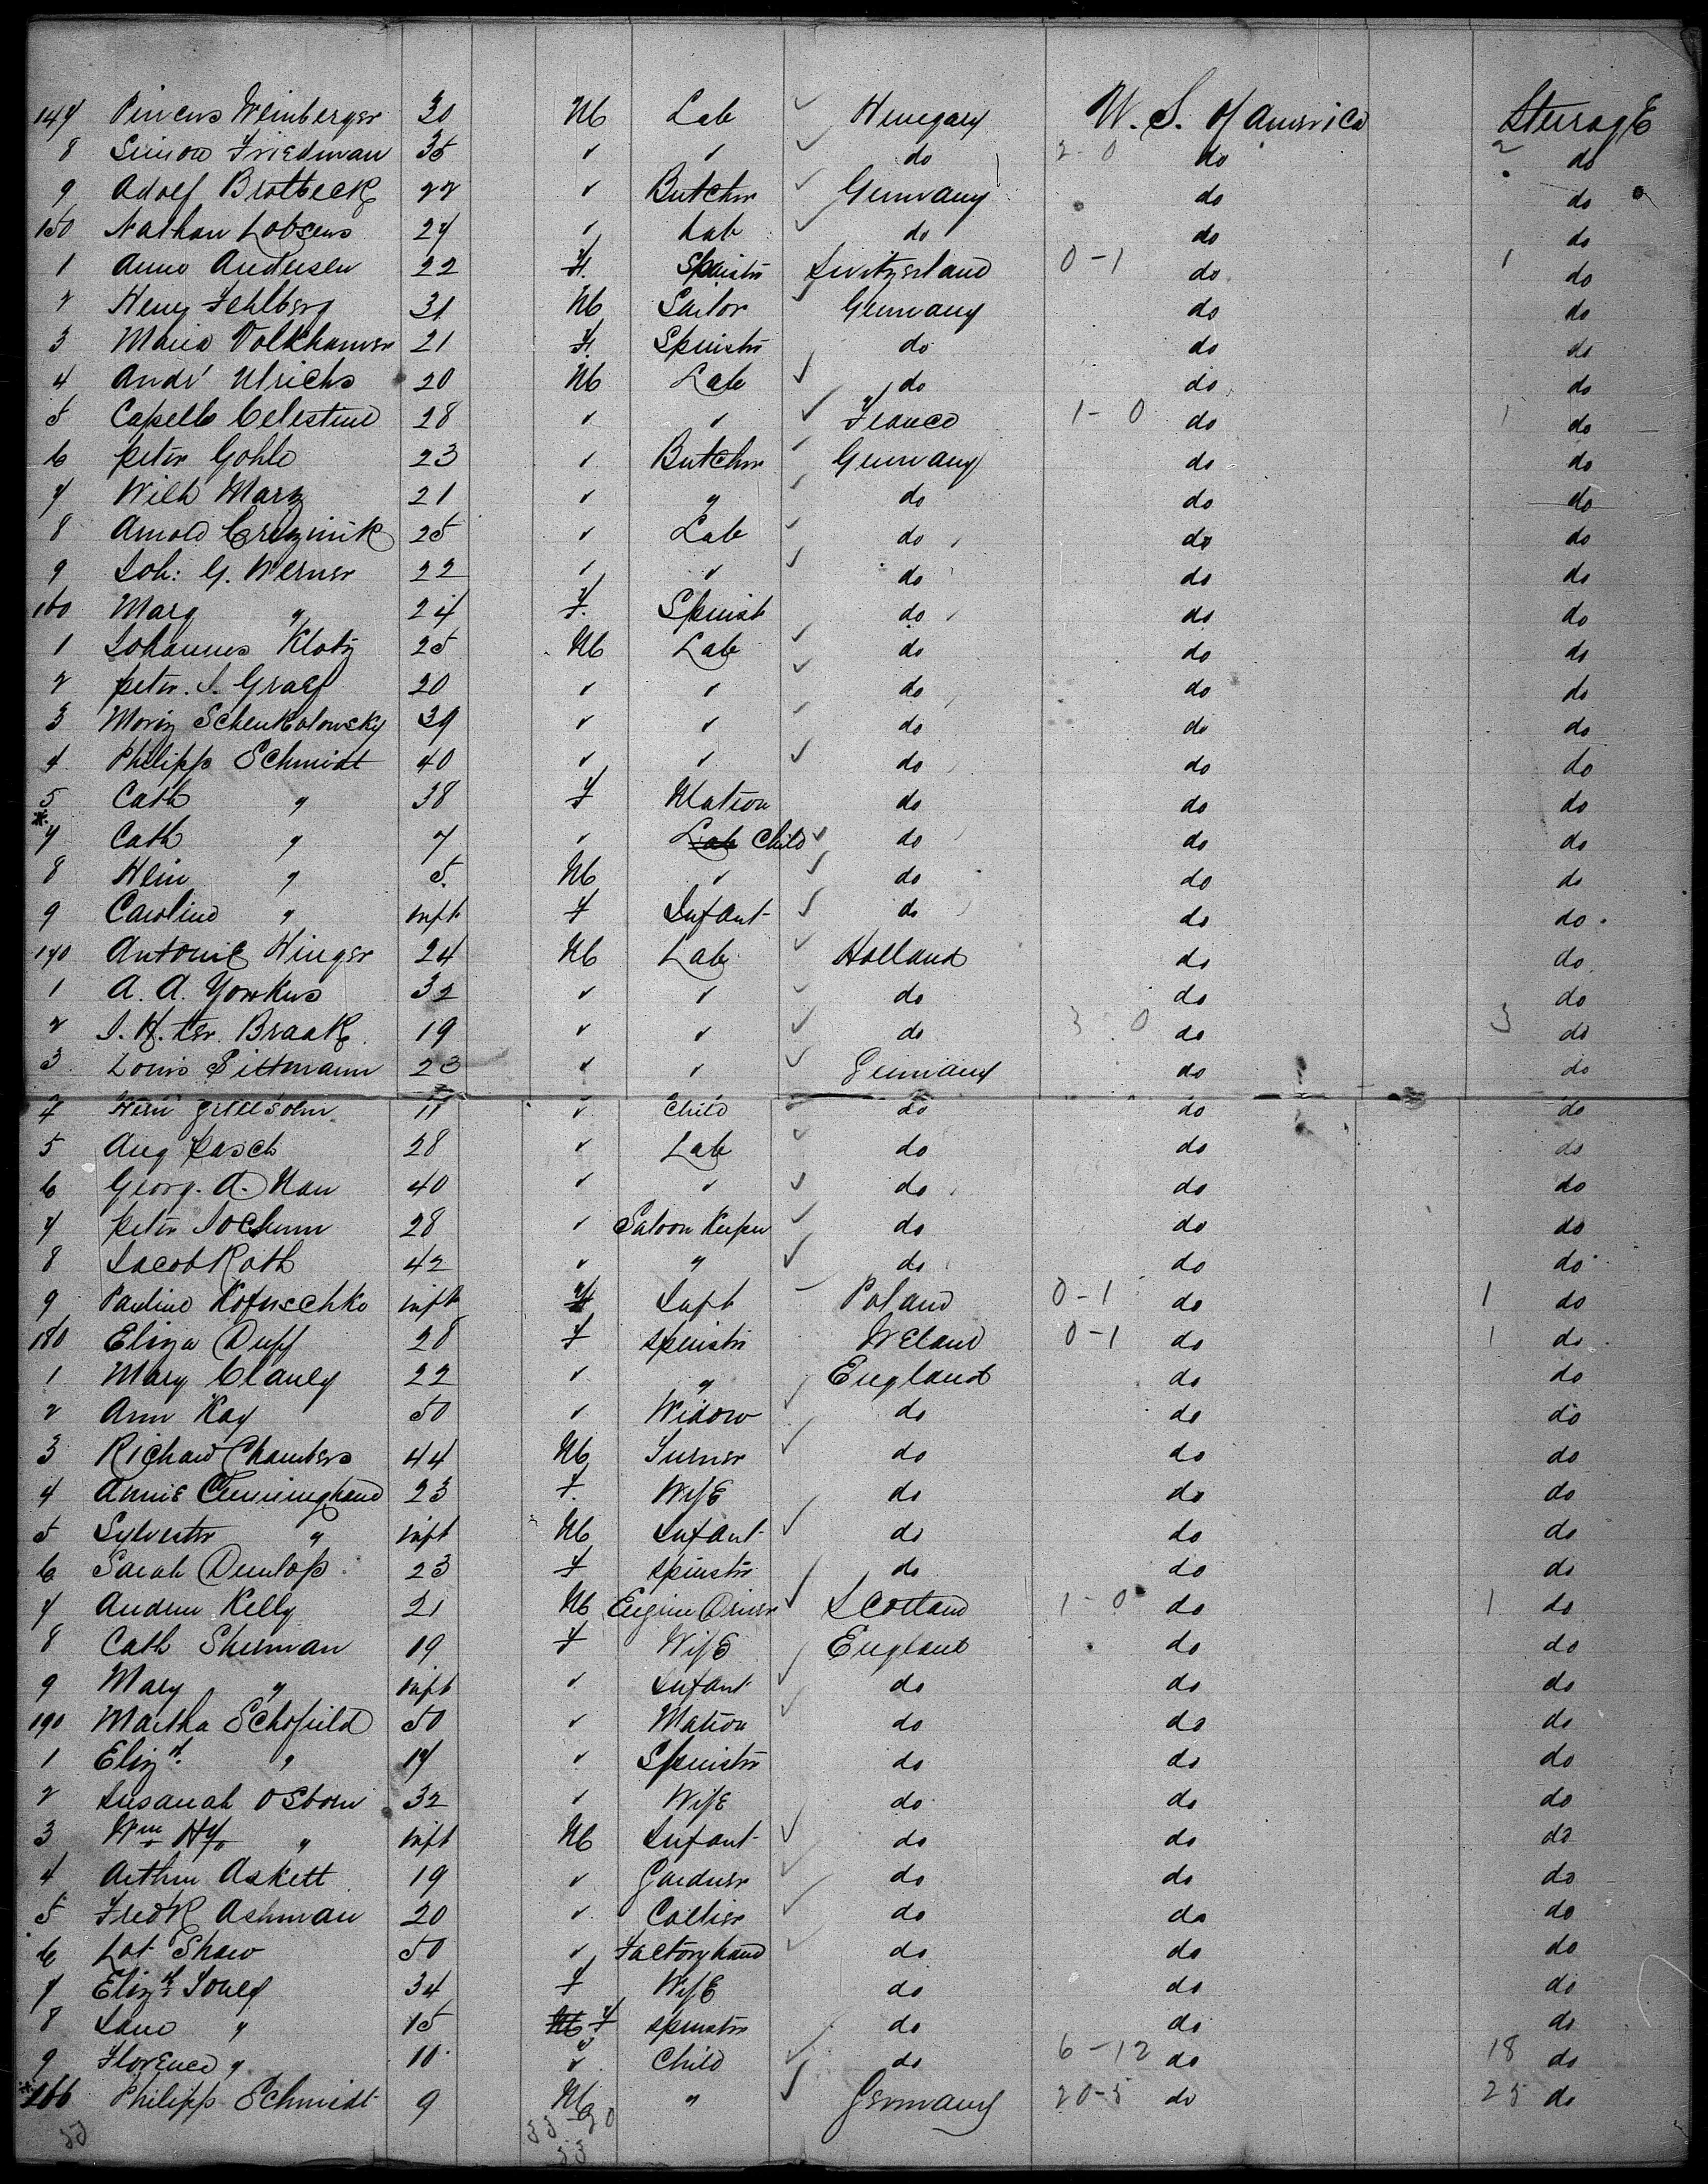 147 Pincus Weinberger 30 M Lab Hungary U. S. of America Steerage
8 Simon Friedman 35 " " do 2-0 do 2 do
9 Adolf Brotbeck 22 " Butcher Germany do do
150 Nathan Lobsens 24 " Lab do do do
1 Anna Andersen 22 F. Spinstr Switzerland 0-1 do 1 do
2 Heny Fehlberg 31 M Sailor Germany do do
3 Maria Volkhamer 21 F. Spinstr do do do
4 Andr Ulrichs 20 M Lab do do do
5 Capello Celestine 28 " " France 1-0 do 1 do
6 Peter Gohle 23 " Butcher Germany do do
7 Wilh Marz 21 " " do do do
8 Arnold 25 " Lab do do do
9 Joh: G. Werner 22 " " do do do
160 Marg " 24 F. Spinst do do do
1 Johannes Klotz 25 M Lab do do do
2 Peter. J. Graef 20 " " do do do
3 Moriz Schenkolowsky 39 " " do do do
4 Philipp Schmidt 40 " " do do do
5 Cath " 38 F Matron do do do
* 7 Cath " 7 " Lab Child do do do
8 Hein " 5. M " do do do
9 Caroline " inft F Infant do do do
170 Antonie Winger 24 M Lab Holland do do
1 A. A. Yonkus 32 " " do do do
2 J. H. ter Braak 19 " " do 3 0 do 3 do
3 Louis Sittmann 23 " " Germany do do
4 Hein 11 " Child do do do
5 Aug Pasch 28 " Lab do do do
6 Georg. A. Nau 40 " " do do do
7 Peter Jochum 28 " Saloon Keeper do do do
8 Jacob Roth 42 " " do do do
9 Pauline Kotuschko inft F Inft Poland 0-1 do 1 do
180 Eliza Duff 28 F spinstr Ireland 0-1 do 1 do
1 Mary Clancy 22 " " England do do
2 Ann Kay 50 " Widow do do do
3 Richard Chambers 44 M Turner do do do
4 Annie Cunningham 23 F. Wife do do do
5 Sylvester " inft M Infant do do do
6 Sarah Dunlop 23 F spinstr do do do
7 Andrew Kelly 21 M Engine Driver Scotland 1-0 do 1 do
8 Cath Sherman 19 F Wife England do do
9 Mary " inft " Infant do do do
190 Martha Schofield 50 " Matron do do do
1 Elizth " 17 " Spinstr do do do
2 Susanah Osborn 32 " Wife do do do
3 Wm Hy " inft M Infant do do do
4 Arthur Askett 19 " Gardner do do do
5 Fredk Ashman 20 " Collier do do do
6 Lot Shaw 50 " Factory hand do do do
7 Elizth Jones 34 F Wife do do do
8 Jane " 15 M F spinstr do do do
9 Florence " 10 " Child do 6-12 do 18 do
* 166 Philipp Schmidt 9 M " Germany 20-5 do 25 do
53 33-20
53